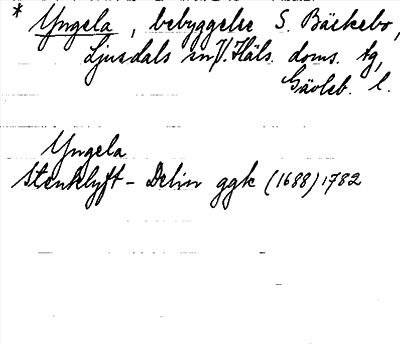 * Yngela, bebyggelse S. Bäckebo,
Ljusdals sn, V. Häls. doms. tg,
Gävleb. l.
Yngela
Stenklyft - Delin ggk (1688) 1782